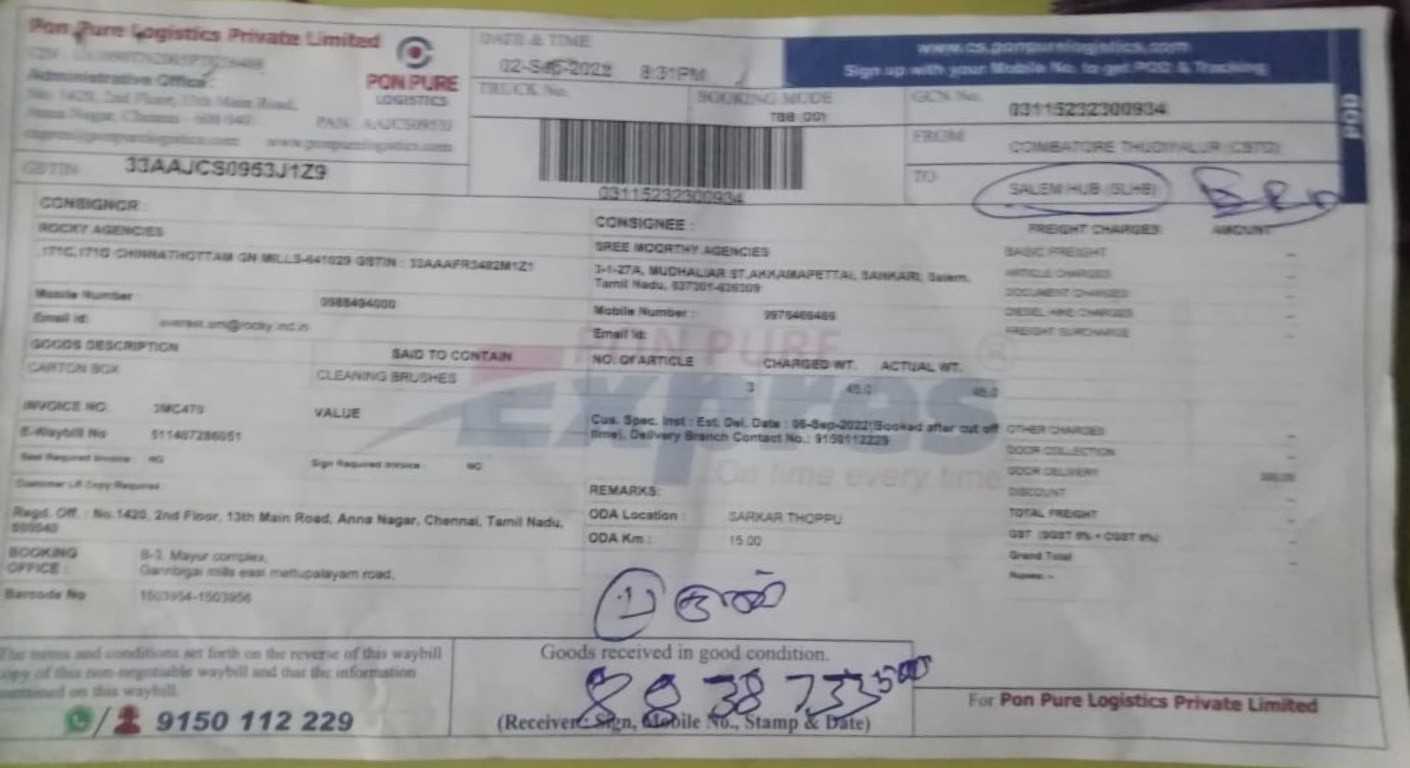 Pon Pure Logistics Private Limited
Administrative Office:
No. 1420, 2nd Floor, 13th Main Road,
Anna Nagar, Chennai - 600 040
www.ponpurelogistics.com
GSTIN 33AAJCS0953J1Z9
PON PURE
LOGISTICS
DATE & TIME
02-Sep-2022 8:31PM
TRUCK No.
BOOKING MODE
TBB
03115232300934
www.cs.ponpurelogistics.com
Sign up with your Mobile No. to get POD & Tracking
POD
GCN No. 03115232300934
FROM COIMBATORE THUDIYALUR
TO SALEM HUB (SLHB)
CONSIGNOR :
ROCKY AGENCIES
171C,171G CHINNATHOTTAM GN MILLS-641029 GSTIN :
Mobile Number
Email id:
CONSIGNEE :
SREE MOORTHY AGENCIES
3-1-27A, MUDHALIAR ST,AKKAMAPETTAI, SANKARI, Salem,
Tamil Nadu,
Mobile Number :
Email Id:
FREIGHT CHARGES AMOUNT
BASIC FREIGHT -
ARTICLE CHARGES -
DOCUMENT CHARGES -
DIESEL HIKE CHARGES -
FREIGHT SURCHARGE -
PON PURE
Expres
On time every time
GOODS DESCRIPTION SAID TO CONTAIN
CARTON BOX CLEANING BRUSHES
NO. OF ARTICLE CHARGED WT. ACTUAL WT.
3 45.0 45.0
INVOICE NO: VALUE
E-Waybill No 511467286051
Sign Required Invoice : NO
Customer LR Copy Required
Cus. Spec. Inst : Est. Del. Date : 06-Sep-2022(Booked after cut off
time). Delivery Branch Contact No.: 9150112229
REMARKS:
ODA Location : SARKAR THOPPU
ODA Km : 15.00
OTHER CHARGES -
DOOR COLLECTION -
DOOR DELIVERY
DISCOUNT -
TOTAL FREIGHT -
Grand Total -
Regd. Off. : No.1420, 2nd Floor, 13th Main Road, Anna Nagar, Chennai, Tamil Nadu,
600040
BOOKING
OFFICE :
B-3, Mayur complex,
mills east mettupalayam road,
Barcode No 1503954-1503956
The terms and conditions set forth on the reverse of this waybill
copy of this non-negotiable waybill and that the information
contained on this waybill.
9150 112 229
Goods received in good condition.
88 38 733 500
(Receiver: Sign, Mobile No., Stamp & Date)
For Pon Pure Logistics Private Limited